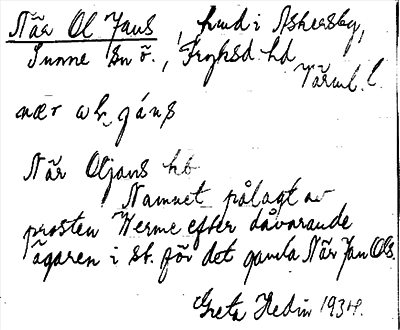 När Ol Jans, hmd i Askersby,
Sunne sn ö., Fryksd. hd
Värml. l.
næ̀r ωl gáns
När Oljans hb
Namnet pålagt av
prosten Werme efter dåvarande
ägaren i st. för det gamla När Jan Ols.
Greta Hedin 1934.